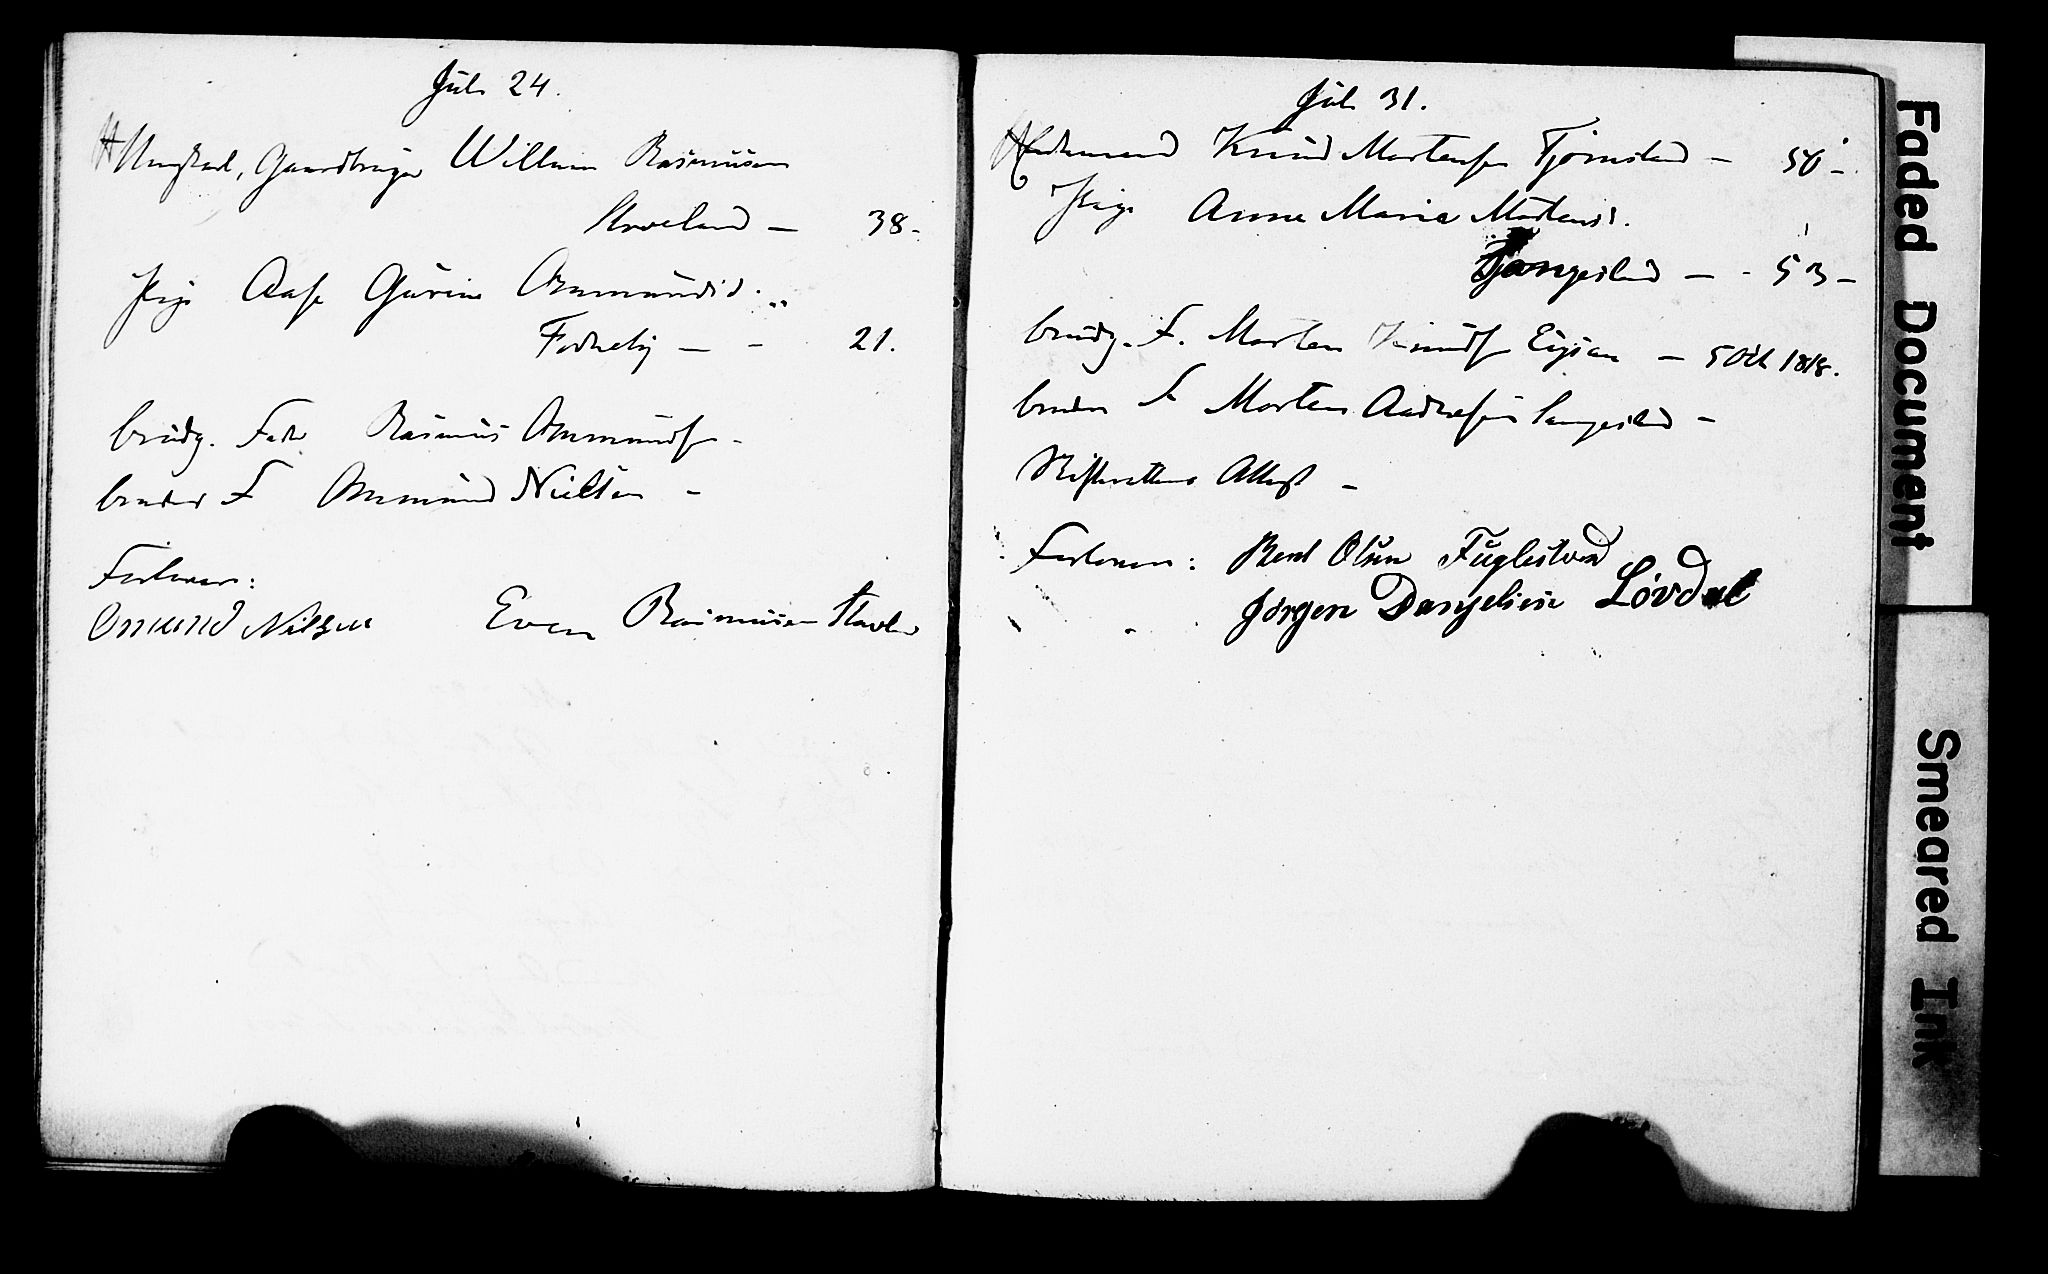 Juli 24.
Ungkarl, Gaardbruger Willum Rasmussen
Stroeland — 38-
Pige Aase Gurine Ommundsd.
Fodneby — - 21.
brudg. Fader Rasmus Ommundss -
brudens F Ommund Nielsen -
Forlovere:
Omund Nilsen Even Rasmussen
Juli 31.
Enkemand Knud Mortenssen Tjørnsland — 50 -
Pige Anne Maria Mortensd.
— - 53 -
brudg. F. Morten Knudss Eigsaa — 5 Oct 1818.
bruden F Morten Aadnesen -
Skifterettens Attest -
Forlovere: Bent Olsen Fuglestved
Jörgen Danjelsen Lövdal
Faded Document
Smeared Ink